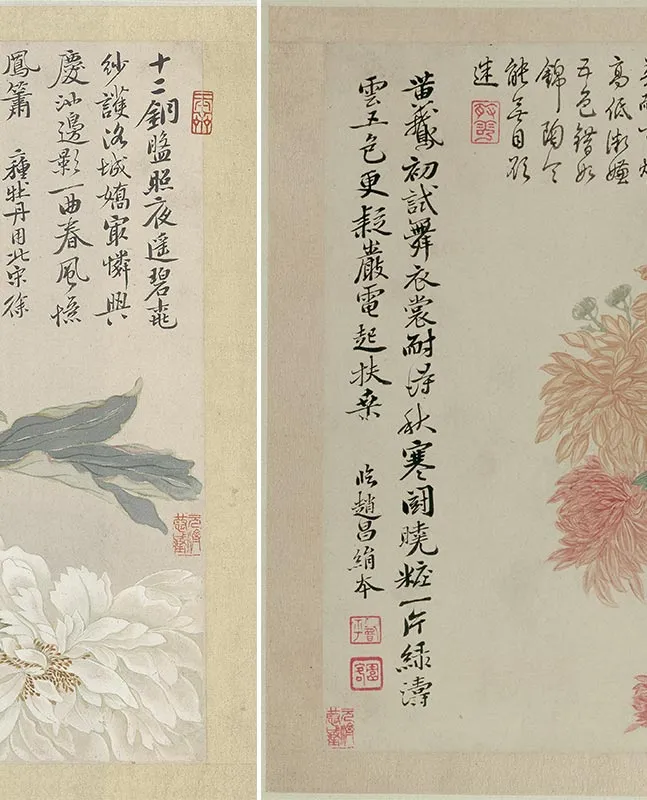 十二銅盤照夜遙碧桃
紗護洛城嬌最憐興
慶池邊影一曲春風憶
鳳簫 種牡丹用北宋徐
高低
五色錯如
錦陶令
能無目欲
迷
黃鵝初試舞衣裳耐得秋寒鬪曉粧一片綠濤
雲五色更疑嚴電起扶桑
臨趙昌絹本